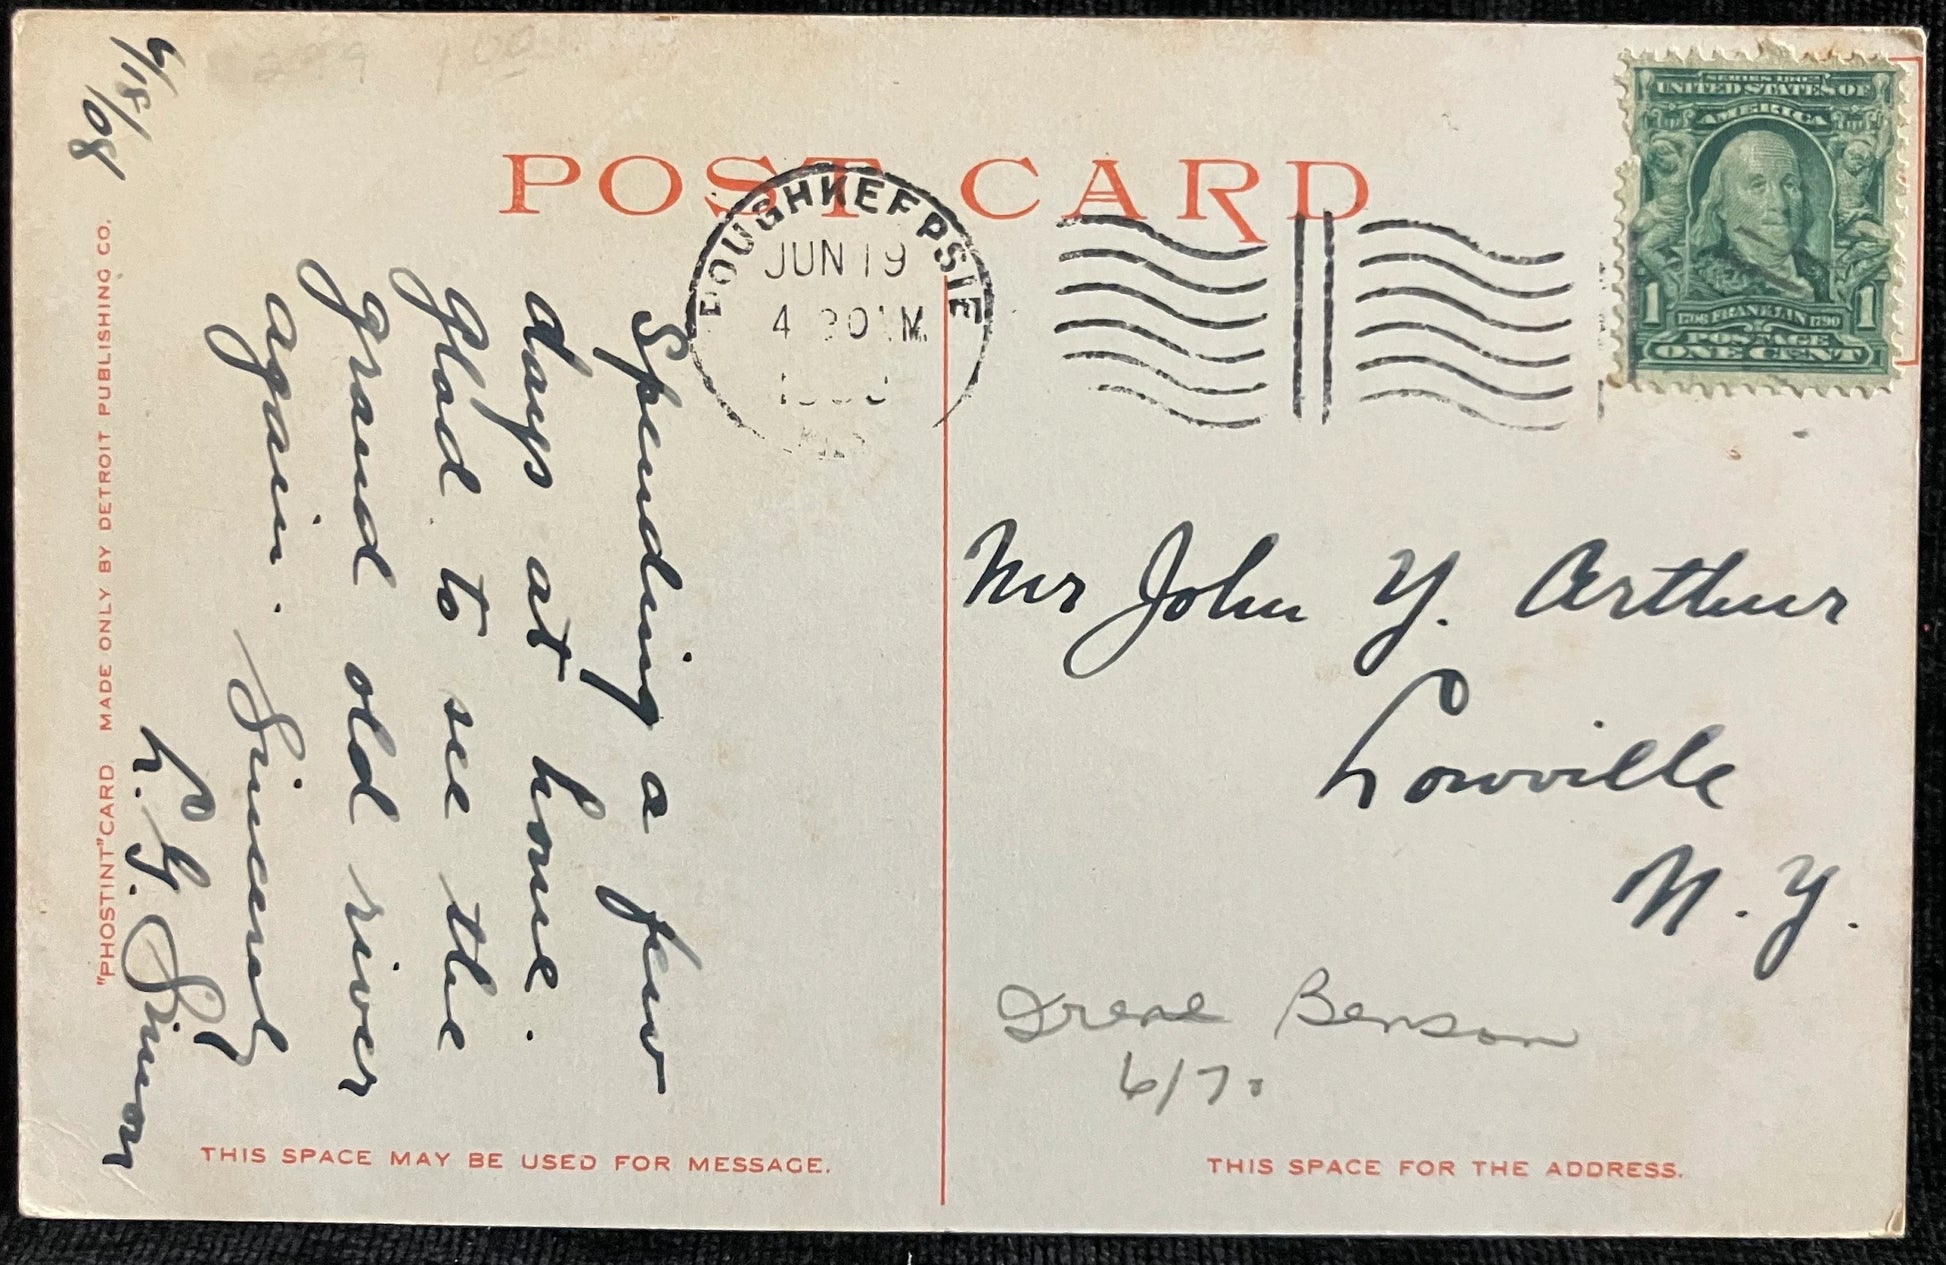 POST CARD
SERIES 1902
UNITED STATES OF
AMERICA
1706 FRANKLIN 1790
1 1
POSTAGE
ONE CENT
POUGHKEEPSIE
JUN 19
4 30 M
6/18/08
Spending a few
days at home.
Glad to see the
grand old river
again. Sincerely
L. G. Simon
Mr John Y. Arthur
Lowville
N. Y.
Irene Benson
6/7.
"PHOSTINT" CARD MADE ONLY BY DETROIT PUBLISHING CO.
THIS SPACE MAY BE USED FOR MESSAGE.
THIS SPACE FOR THE ADDRESS.